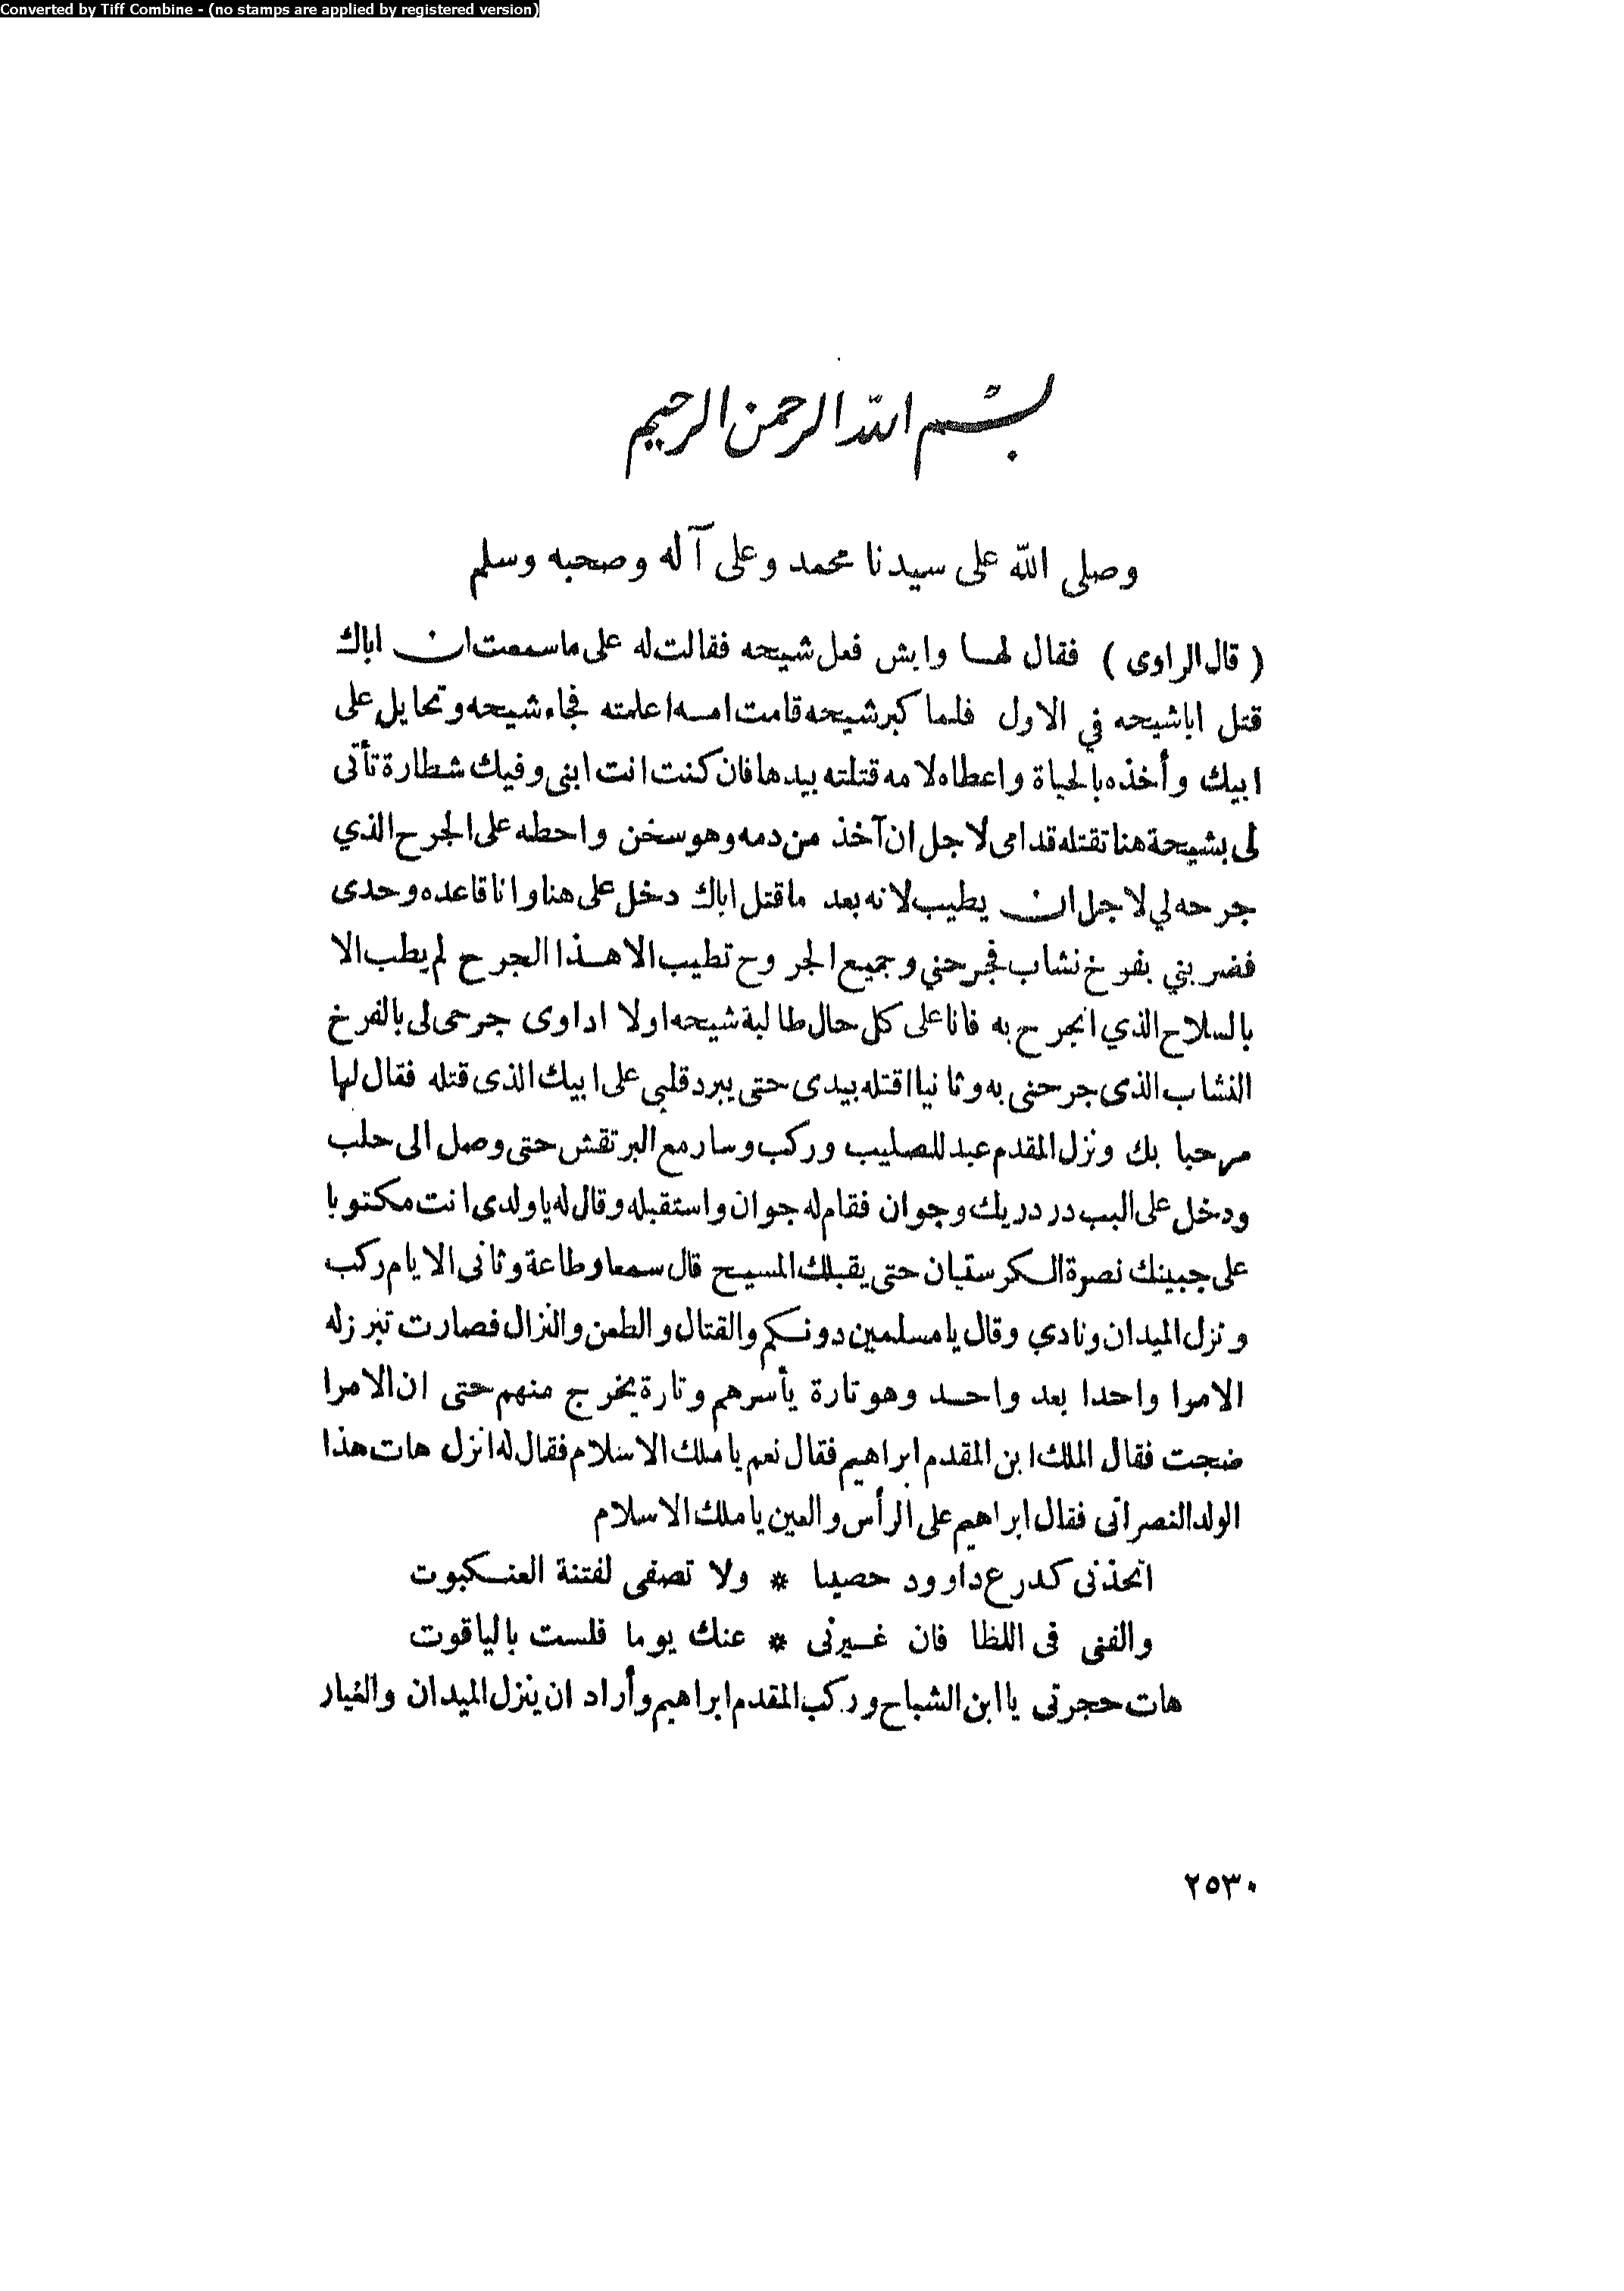 Converted by Tiff Combine - (no stamps are applied by registered version)
بسم الله الرحمن الرحيم
وصلى الله على سيدنا محمد وعلى آله وصحبه وسلم
( قال الراوى ) فقال لها وايش فعل شيحه فقالت له على ما سمعت ان اباك
قتل اباشيحه في الاول فلما كبر شيحه قامت امه اعلمته فجاء شيحه وتحايل على
ابيك وأخذه بالحياة واعطاه لامه قتلته بيدها فان كنت انت ابنى وفيك شطارة تأتى
لى بشيحة هنا تقتله قدامى لاجل ان آخذ من دمه وهو سخن واحطه على الجرح الذي
جرحه لي لاجل ان يطيب لانه بعد ما قتل اباك دخل على هنا وانا قاعده وحدى
فضربني بفرخ نشاب فجرحني وجميع الجروح تطيب الا هذا الجرح لم يطب الا
بالسلاح الذي انجرح به فانا على كل حال طالبة شيحه اولا اداوى جرحى لى بالفرخ
النشاب الذى جرحنى به وثانيا اقتله بيدى حتى يبرد قلبي على ابيك الذى قتله فقال لها
مرحبا بك ونزل المقدم عبد للصليب وركب وسار مع البرتقش حتى وصل الى حلب
ودخل على البب دردريك وجوان فقام له جوان واستقبله وقال له يا ولدى انت مكتوبا
على جبينك نصرة الكرستيان حتى يقبلك المسيح قال سمعا وطاعة وثانى الايام ركب
ونزل الميدان ونادي وقال يا مسلمين دونكم والقتال والطعن والنزال فصارت تبرز له
الامرا واحدا بعد واحد وهو تارة يأسرهم وتارة يخرج منهم حتى ان الامرا
ضجت فقال الملك ابن المقدم ابراهيم فقال نعم يا ملك الاسلام فقال له انزل هات هذا
الولد النصرانى فقال ابراهيم على الرأس والعين يا ملك الاسلام
اتخذنى كدرع داوود حصينا * ولا تصغى لفتنة العنكبوت
والقنى فى اللظا فان غيرنى * عنك يوما فلست بالياقوت
هات حجرتى يا ابن الشباح وركب المقدم ابراهيم وأراد ان ينزل الميدان والغبار
٢٥٣٠